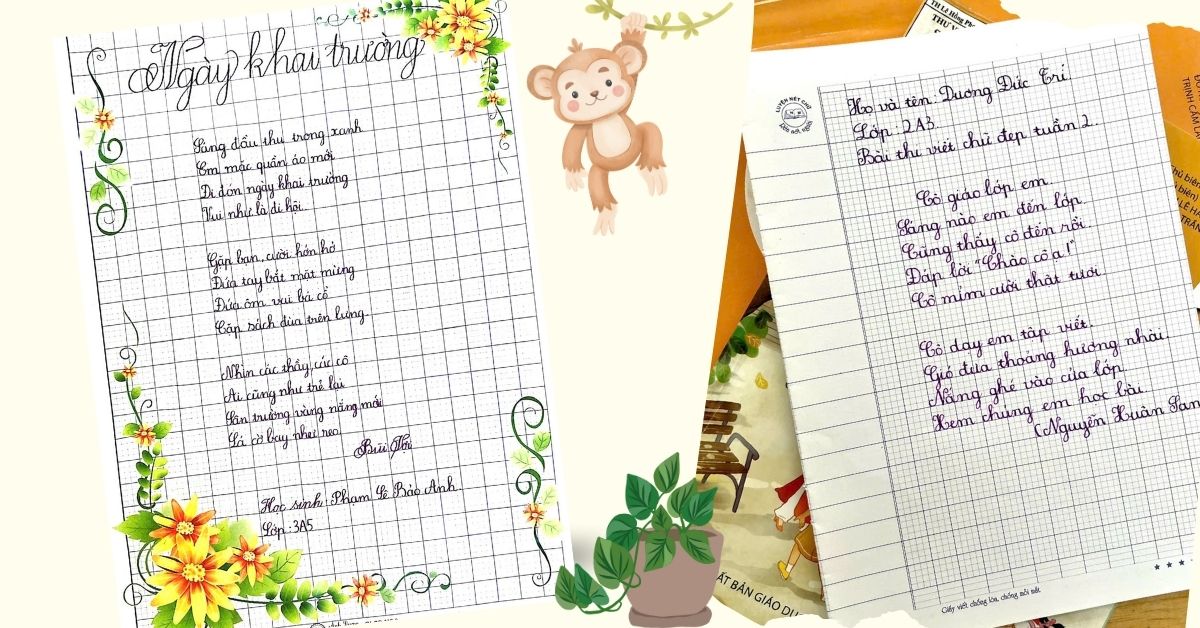 Ngày khai trường
Sáng đầu thu trong xanh
Em mặc quần áo mới
Đi đón ngày khai trường
Vui như là đi hội.
Gặp bạn, cười hớn hở
Đứa tay bắt mặt mừng
Đứa ôm vai bá cổ
Cặp sách đùa trên lưng.
Nhìn các thầy, các cô
Ai cũng như trẻ lại
Sân trường vàng nắng mới
Lá cờ bay như reo
Bùi
Học sinh: Phạm Lê Bảo Anh
Lớp: 3A5
TH Lê Hồng
LUYỆN NÉT CHỮ
RÈN NẾT NGƯỜI
Họ và tên: Dương Đức Trí
Lớp: 2A3
Bài thi viết chữ đẹp tuần 2.
Cô giáo lớp em
Sáng nào em đến lớp
Cũng thấy cô đến rồi
Đáp lời "Chào cô ạ!"
Cô mỉm cười thật tươi
Cô dạy em tập viết
Gió đưa thoảng hương nhài
Nắng ghé vào cửa lớp
Xem chúng em học bài
(Nguyễn Xuân San
TRỊNH CẨM
ẤT BẢN GIÁO DỤ
Giấy viết chống lóa, chống mỏi mắt